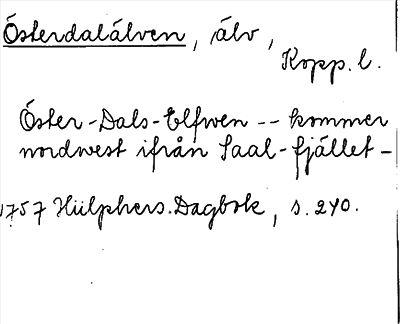 Österdalälven, älv,
Kopp. l.
Öster-Dals-Elfwen -- kommer
nordwest ifrån Saal-fjället -
1757 Hülphers. Dagbok, s. 240.